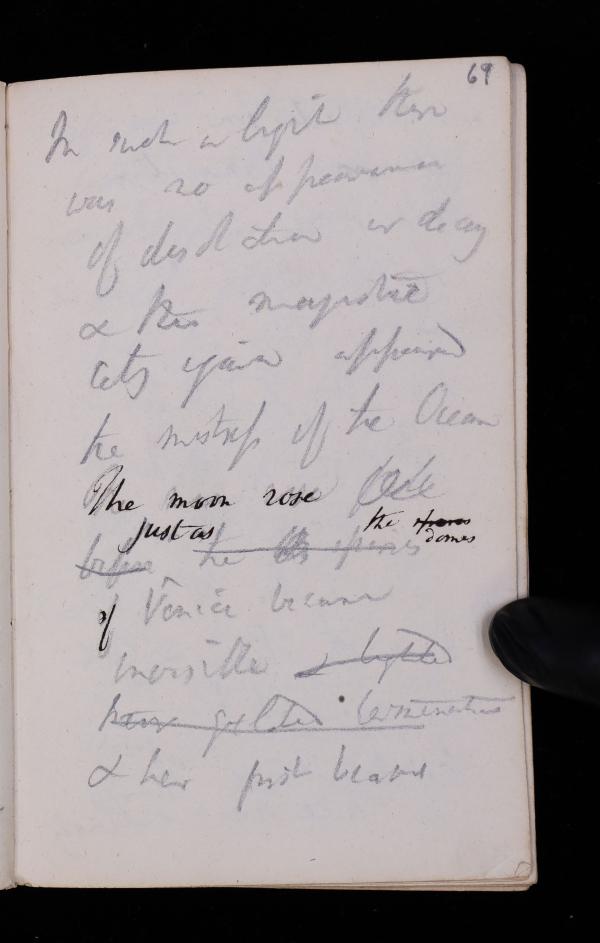 69
In such a light there
was no appearance
of desolation or decay
& this majestic
city again appeared
the mistress of the Ocean
The moon rose
just as the spires domes
before the spires
of Venice became
invisible & lighted
their gilded terminations
& her first beams